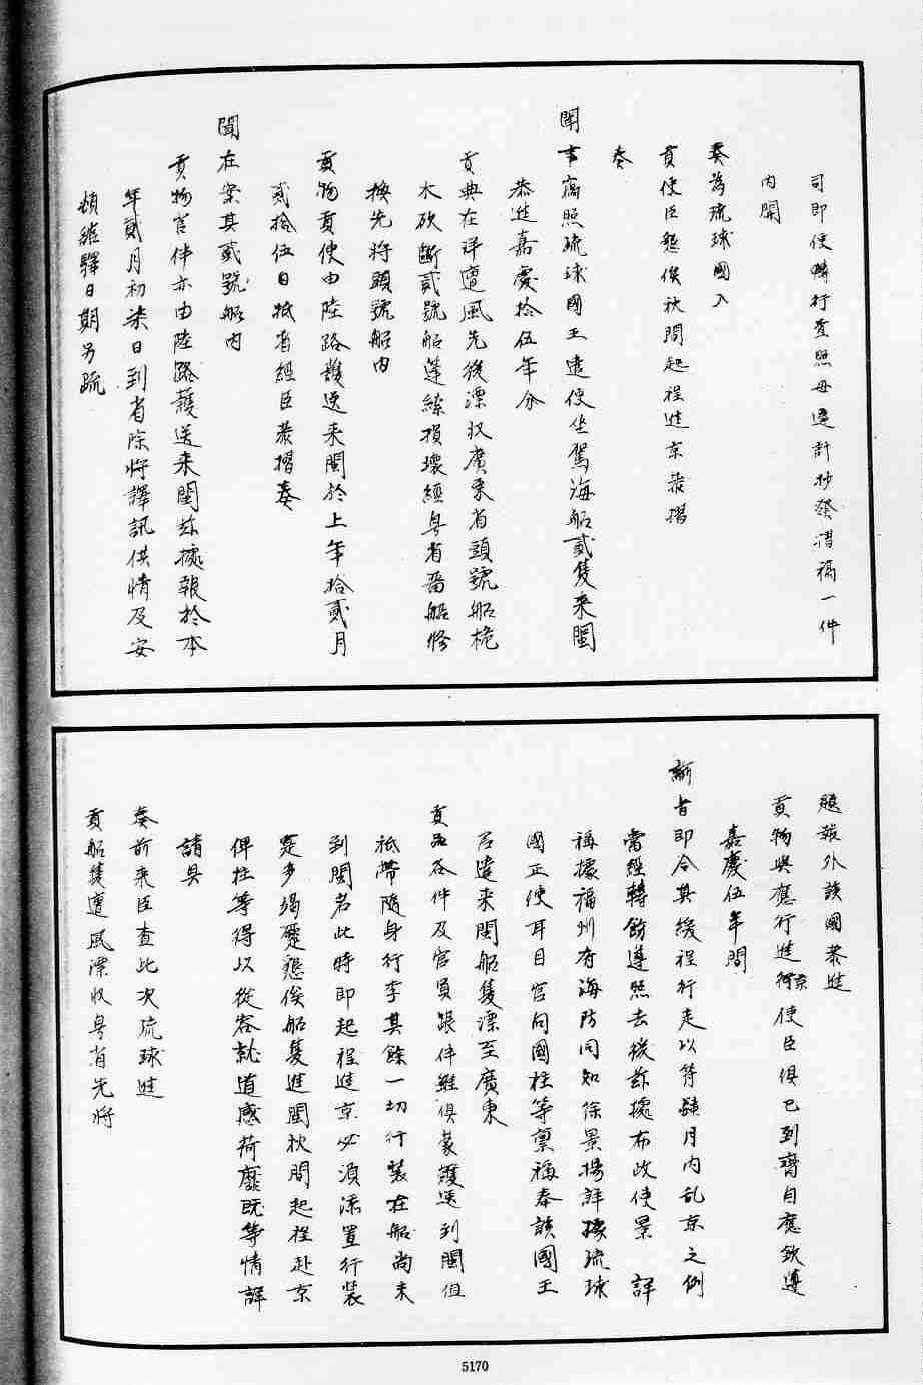 司即便轉行查照毋違計抄發清稿一件
內開
奏為琉球國入
貢使臣懇俟秋間起程進京恭摺
奏
聞事竊照琉球國王遣使坐駕海船貳隻來閩
恭進嘉慶拾伍年分
貢典在洋遭風先後漂收廣東省頭號船桅
木砍斷貳號船篷綠損壞經粵省番船修
換先將頭號船內
貢物貢使由陸路護送來閩於上年拾貳月
貳拾伍日抵省經臣恭摺奏
聞在案其貳號船內
貢物官伴亦由陸路護送來閩茲據報於本
年貳月初柒日到省除將譯訊供情及安
頓繼驛日期另疏
題報外該國恭進
貢物與應行進京使臣俱已到齊自應欽遵
嘉慶伍年間
諭旨即令其緩程行走以符臘月內到京之例
當經轉飭遵照去後茲據布政使景 詳
稱據福州府海防同知徐景揚詳據琉球
國正使耳目官向國柱等稟稱奉該國王
召遣來閩船隻漂至廣東
貢品各件及官員跟伴雖俱蒙護送到閩但
祇帶隨身行李其餘一切行裝在船尚未
到閩若此時即起程進京必須添置行裝
寔多竭蹙懇俟船隻進閩秋間起程赴京
俾柱等得以從容就道感荷靡既等情詳
請具
奏前來臣查此次琉球進
貢船隻遭風漂收粵省先將
5170